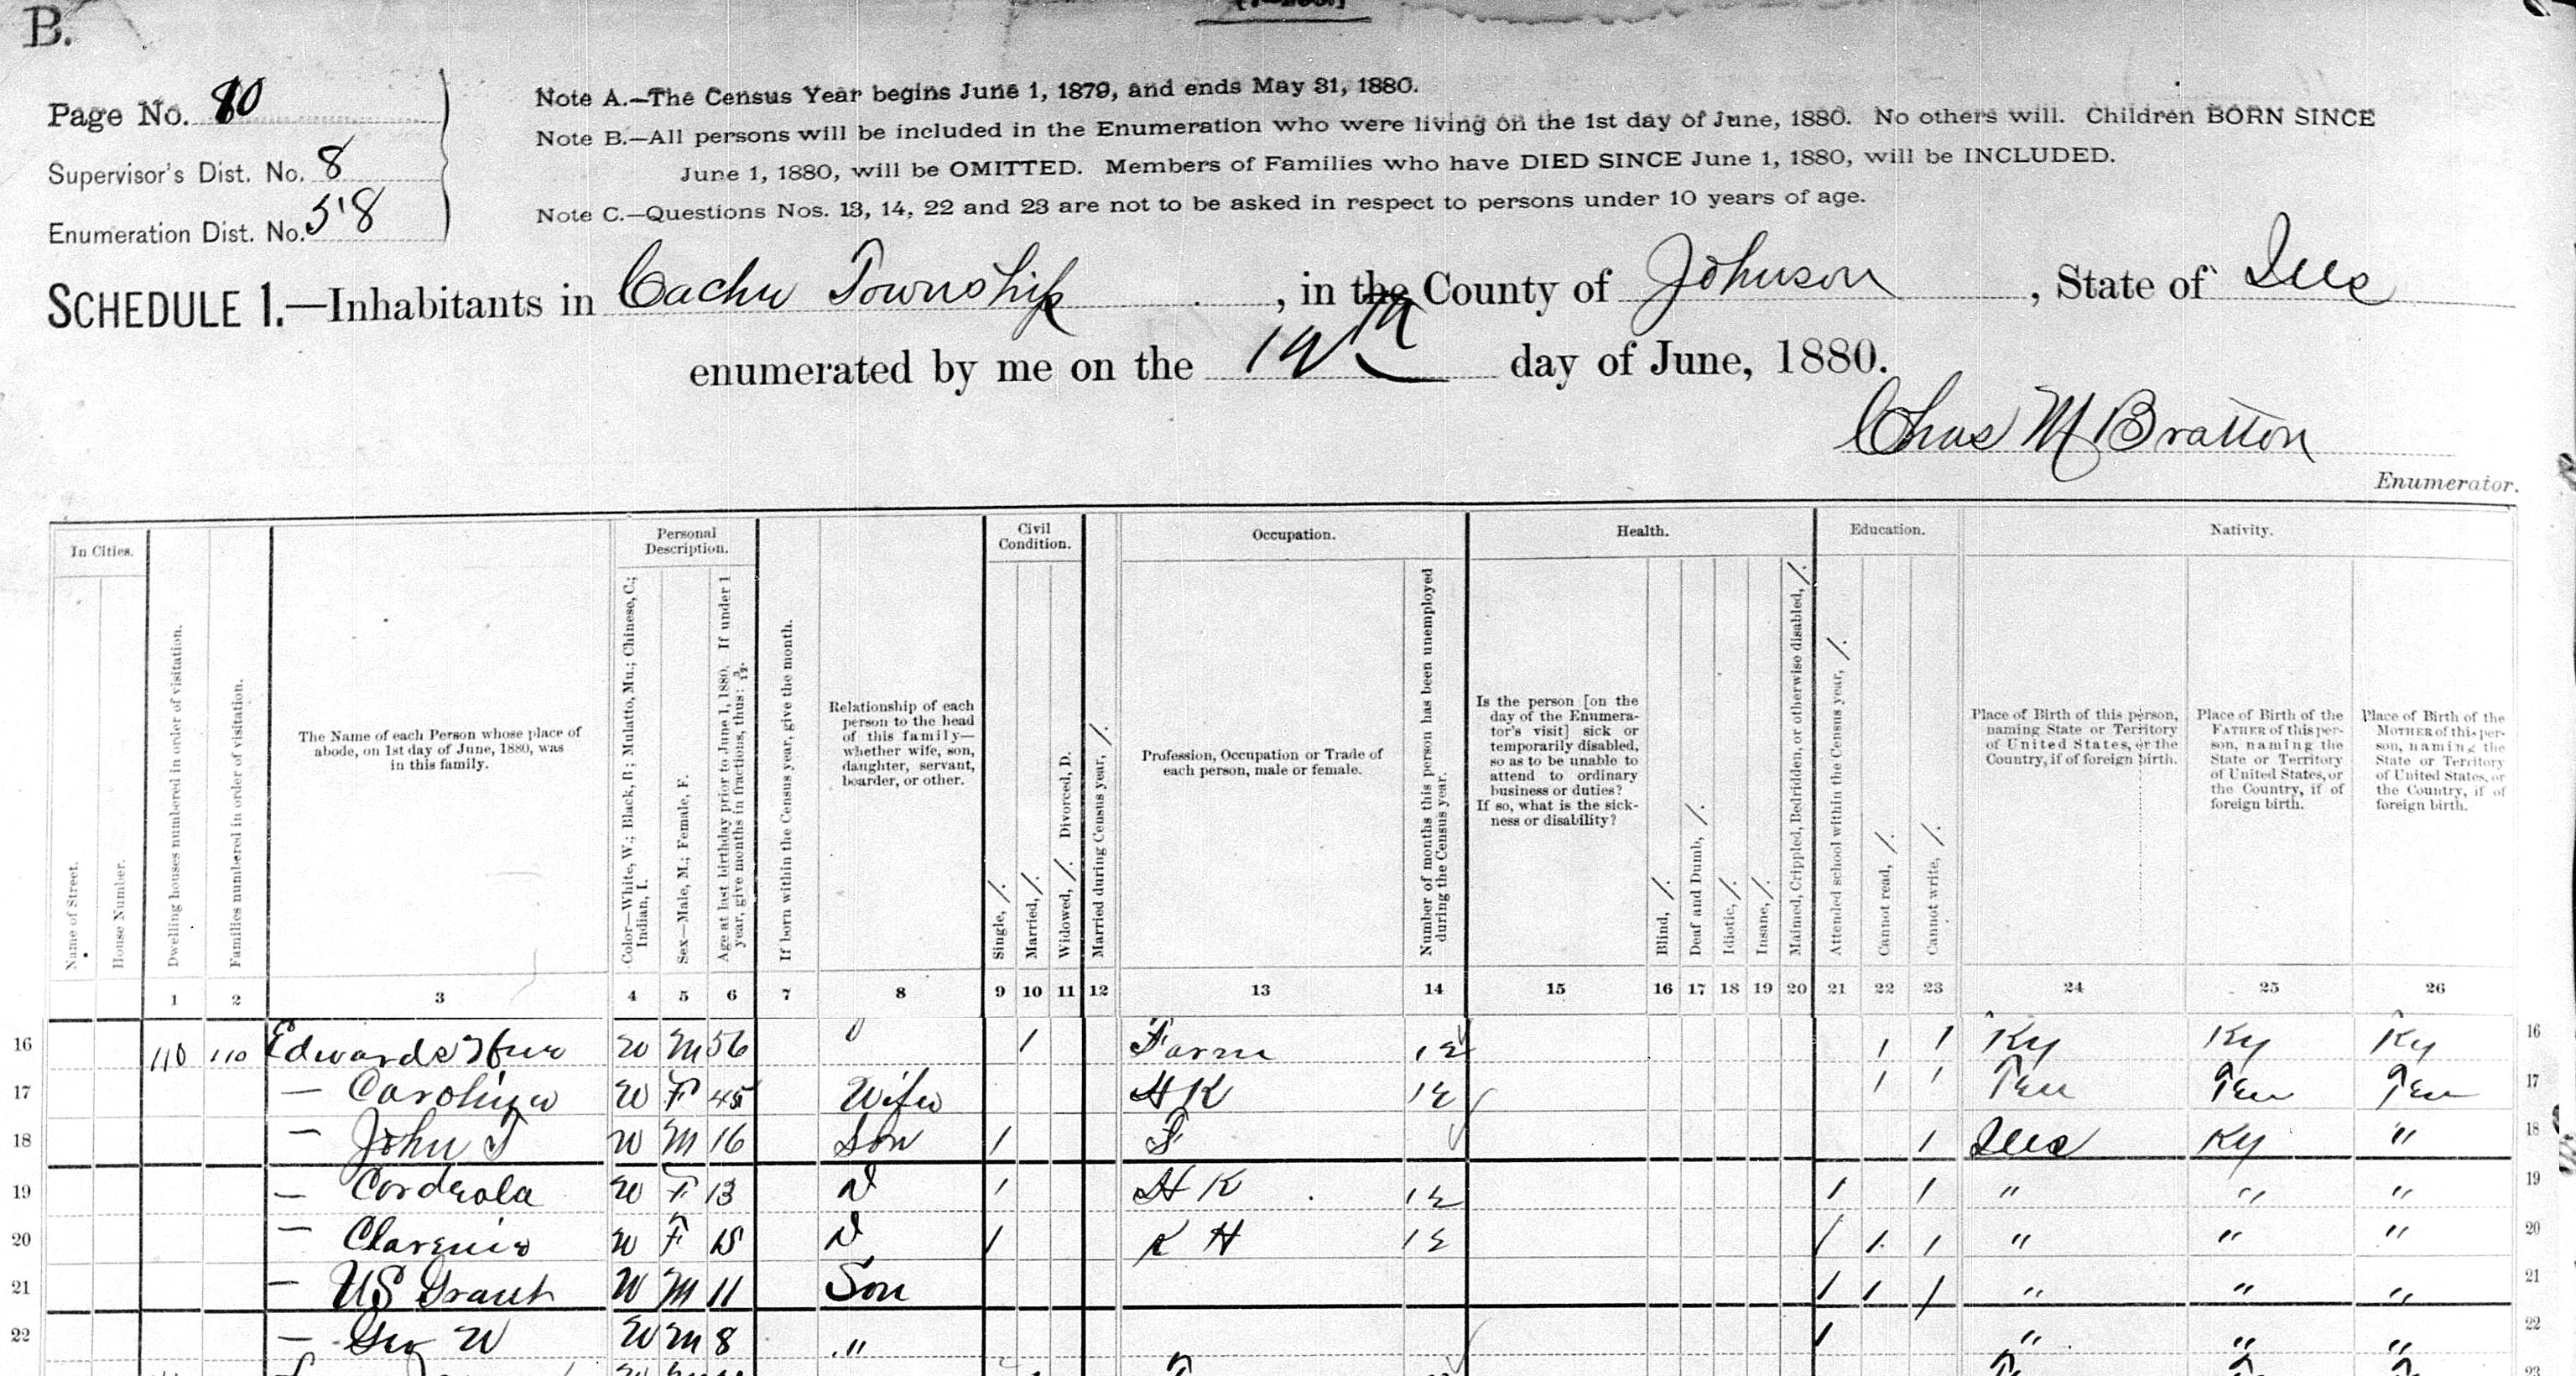 B.
Page No. 10
Supervisor's Dist. No. 8
Enumeration Dist. No. 58
Note A.—The Census Year begins June 1, 1879, and ends May 31, 1880.
Note B.—All persons will be included in the Enumeration who were living on the 1st day of June, 1880. No others will. Children BORN SINCE
June 1, 1880, will be OMITTED. Members of Families who have DIED SINCE June 1, 1880, will be INCLUDED.
Note C.—Questions Nos. 13, 14, 22 and 23 are not to be asked in respect to persons under 10 years of age.
SCHEDULE 1.—Inhabitants in Cache Township, in the County of Johnson, State of Ills
enumerated by me on the 12th day of June, 1880.
Chas M Bratton
Enumerator.
In Cities. Personal Description. Civil Condition. Occupation. Health. Education. Nativity.
Name of Street.
House Number.
Dwelling houses numbered in order of visitation.
Families numbered in order of visitation.
The Name of each Person whose place of
abode, on 1st day of June, 1880, was
in this family.
Color—White, W.; Black, B; Mulatto, Mu.; Chinese, C.;
Indian, I.
Sex—Male, M.; Female, F.
Age at last birthday prior to June 1, 1880. If under 1
year, give months in fractions, thus: 3/12.
If born within the Census year, give the month.
Relationship of each
person to the head
of this family—
whether wife, son,
daughter, servant,
boarder, or other.
Single, /.
Married, /.
Widowed, /. Divorced, D.
Married during Census year, /.
Profession, Occupation or Trade of
each person, male or female.
Number of months this person has been unemployed
during the Census year.
Is the person [on the
day of the Enumera-
tor's visit] sick or
temporarily disabled,
so as to be unable to
attend to ordinary
business or duties?
If so, what is the sick-
ness or disability?
Blind, /.
Deaf and Dumb, /.
Idiotic, /.
Insane, /.
Maimed, Crippled, Bedridden, or otherwise disabled, /.
Attended school within the Census year, /.
Cannot read, /.
Cannot write, /.
Place of Birth of this person,
naming State or Territory
of United States, or the
Country, if of foreign birth.
Place of Birth of the
FATHER of this per-
son, naming the
State or Territory
of United States, or
the Country, if of
foreign birth.
Place of Birth of the
MOTHER of this per-
son, naming the
State or Territory
of United States, or
the Country, if of
foreign birth.
1 2 3 4 5 6 7 8 9 10 11 12 13 14 15 16 17 18 19 20 21 22 23 24 25 26
16 110 110 Edwards W M 56 1 Farm 12 1 1 Ky Ky Ky 16
17 — Caroline W F 45 Wife H K 12 1 1 Ten Ten Ten 17
18 — John T W M 16 Son 1 F 1 Ills Ky " 18
19 — Corderola W F 13 D 1 H K 12 1 1 " " " 19
20 — W F 15 D 1 K H 12 1 1 1 " " " 20
21 — US Grant W M 11 Son 1 1 1 " " " 21
22 — Geo W W M 8 " 1 " " " 22
23